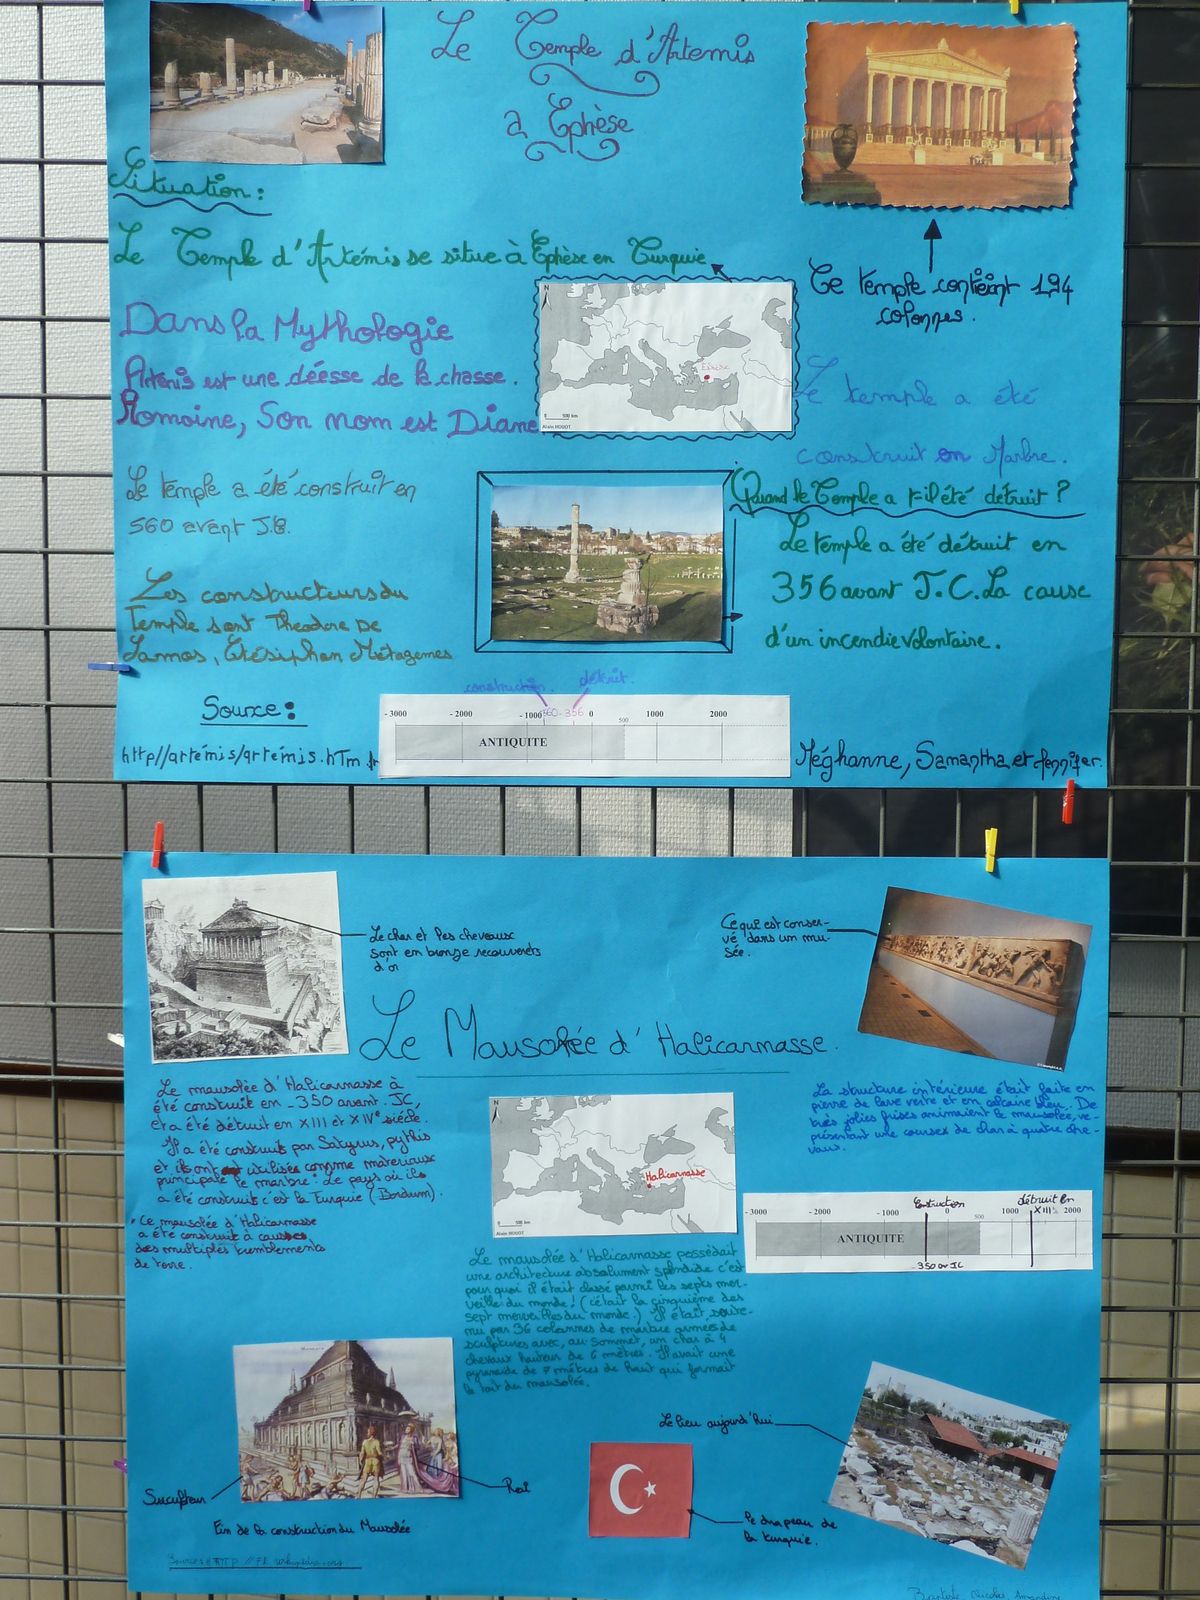 Le Temple d'Artemis
a Ephèse
Situation :
Le Temple d'Artémis se situe à Ephèse en Turquie
Dans la Mythologie
Artémis est une déesse de la chasse.
Romaine, Son nom est Diane
Le temple a été construit en
560 avant J.C.
Les constructeurs du
Temple sont Theodore De
Samos, Ctésiphon Métagenes
Source :
http//artémis/artémis.hTm.fr
N
Ephèse
0 500 km
Alain HOUOT.
Ce temple contient 194
colonnes.
Le temple a été
construit en Marbre.
Quand le Temple a t-il été détruit ?
Le temple a été détruit en
356 avant J.C. La cause
d'un incendie volontaire.
construction. détruit.
-3000 -2000 -1000 560 -356 0 500 1000 2000
ANTIQUITE
Méghanne, Samantha et Jennifer.
Le char et les chevaux
sont en bronze recouverts
d'or
Ce qui est conser-
vé dans un mu-
sée.
Le Mausolée d'Halicarnasse.
Le mausolée d'Halicarnasse à
été construit en -350 avant. JC,
et a été détruit en XIII et XIVe siécle.
Il a été construit par Satyrus, pythis
et ils ont utilisés comme materiaux
principale le marbre. Le pays où il
a été construit c'est la Turquie (Bordum).
Ce mausolée d'Halicarnasse
a été construit à causes
des multiples tremblements
de terre.
N
Halicarnasse
0 500 km
Alain HOUOT
La structure intérieure était faite en
pierre de lave verte et en calcaire bleu. De
très jolies frises animaient le mausolée, re-
présentant une courses de char à quatre che-
vaux.
Construction détruit en
XIII
-3000 -2000 -1000 0 500 1000 2000
ANTIQUITÉ
-350 av JC
Le mausolée d'Halicarnasse possédait
une architecture absolument splendide c'est
pour quoi il était classé parmi les septs mer-
veille du monde ! (c'était la cinquième des
sept merveilles du monde.) Il était soute-
nu par 36 colonnes de marbre armées de
sculptures avec, au sommet, un char à 4
chevaux hauteur de 6 mètres. Il avait une
pyramide de 7 mètres de haut qui formait
le toit du mausolée.
Le lieu aujourd'hui
Sculpteur
Roi
Fin de la construction du Mausolée
le drapeau de
la turquie.
Sources : HTTP // FR. wikipedia.org
Baptiste Nicolas, Amandine